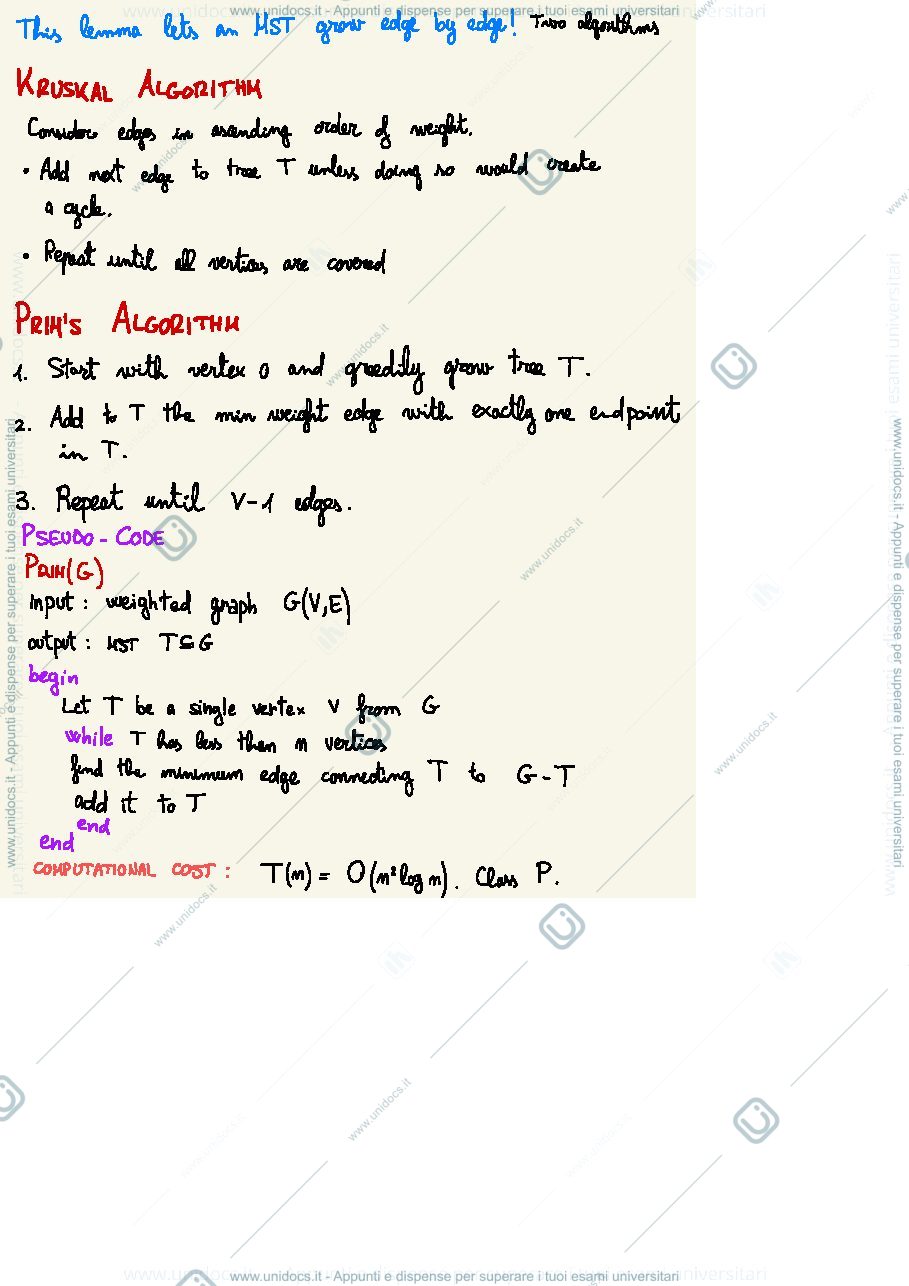 www.unidocs.it - Appunti e dispense per superare i tuoi esami universitari
This lemma lets an MST grow edge by edge! Two algorithms
KRUSKAL ALGORITHM
Consider edges in ascending order of weight.
• Add next edge to tree T unless doing so would create
a cycle.
• Repeat until all vertices are covered
PRIM'S ALGORITHM
1. Start with vertex 0 and greedily grow tree T.
2. Add to T the min weight edge with exactly one endpoint
in T.
3. Repeat until V-1 edges.
PSEUDO-CODE
PRIM(G)
input: weighted graph G(V,E)
output: MST T⊆G
begin
Let T be a single vertex v from G
while T has less then n vertices
find the minimum edge connecting T to G-T
add it to T
end
end
COMPUTATIONAL COST: T(n) = O(n² log n). Class P.
www.unidocs.it - Appunti e dispense per superare i tuoi esami universitari
www.unidocs.it - Appunti e dispense per superare i tuoi esami universitari
www.unidocs.it
www.unidocs.it
www.unidocs.it
www.unidocs.it
www.unidocs.it
www.unidocs.it
www.unidocs.it - Appunti e dispense per superare i tuoi esami universitari